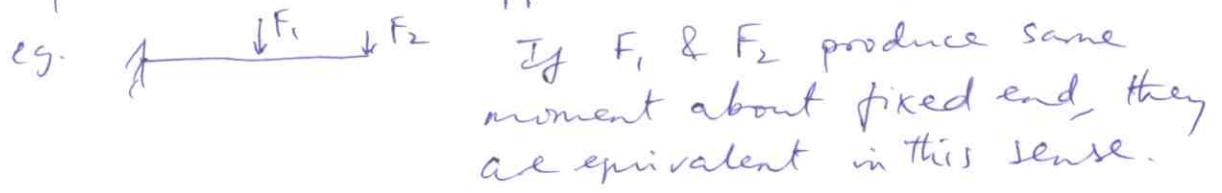 eg. F1 F2 If F1 & F2 produce same
moment about fixed end, they
are equivalent in this sense.